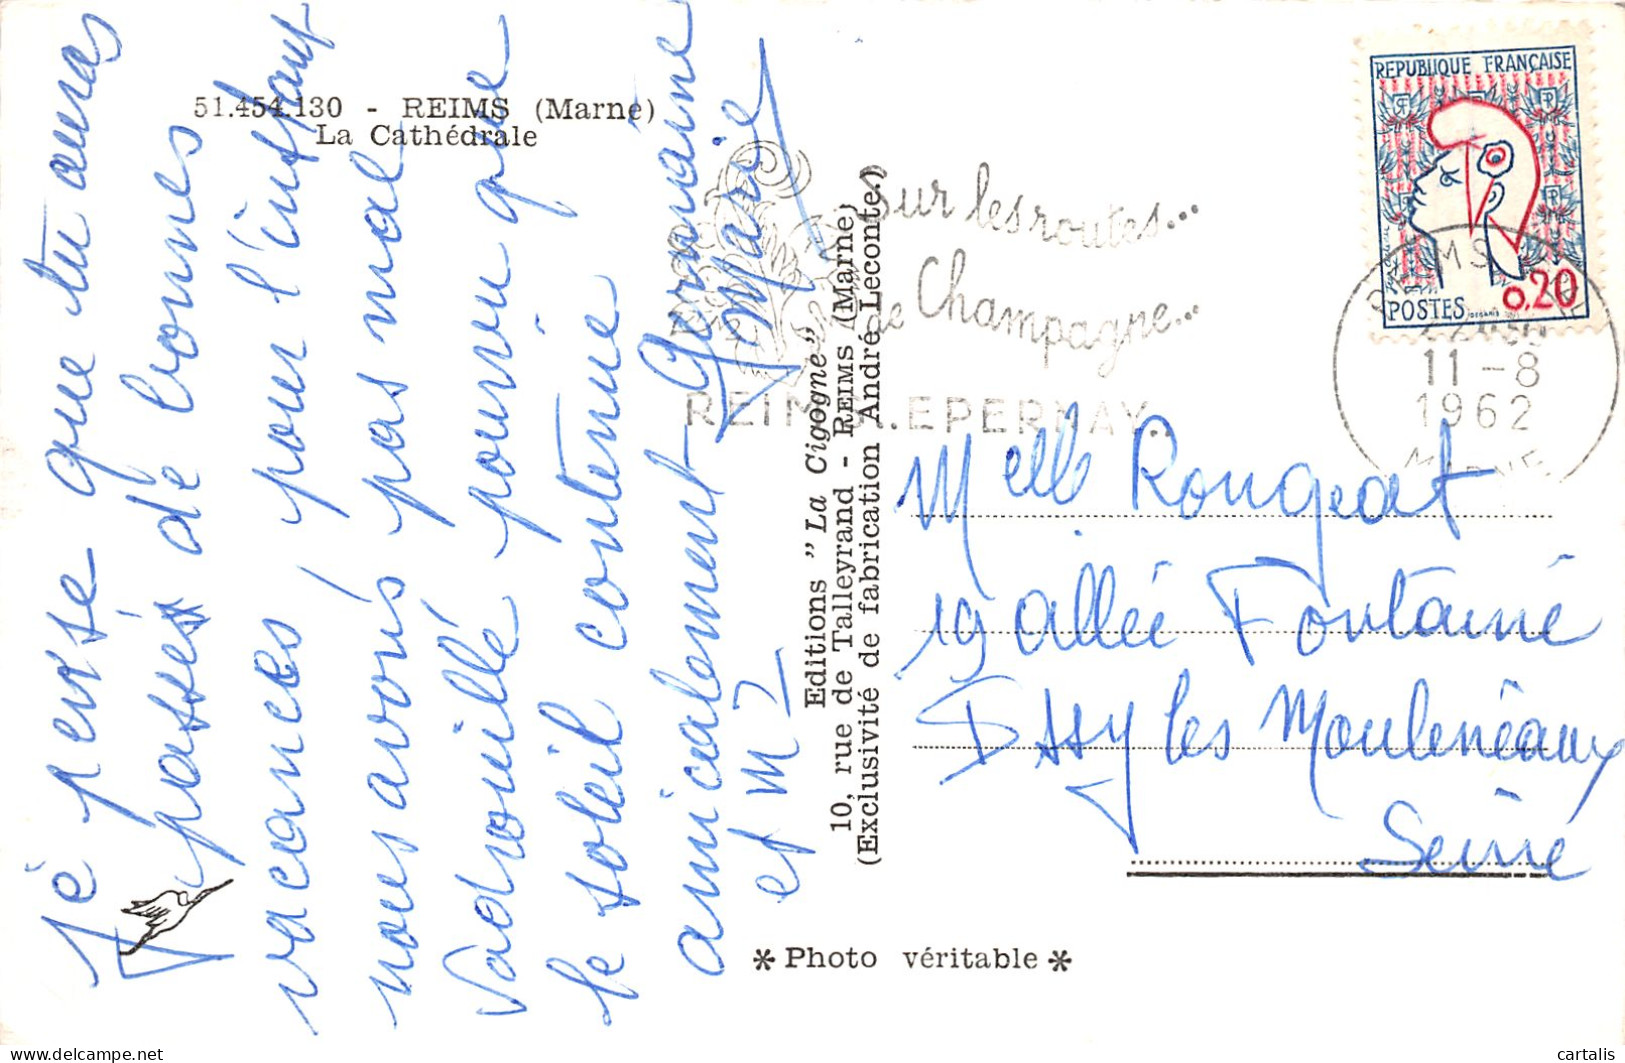 51.454.130 - REIMS (Marne)
La Cathédrale
je pense que tu auras
passés de bonnes
vacances, pour l'instant
nous avons pas mal
vadrouillé pourvu que
le soleil continue
amicalement Germaine
et M Marie
Editions "La Cigogne"
10, rue de Talleyrand - REIMS (Marne)
(Exclusivité de fabrication André Leconte.)
* Photo véritable *
Sur les routes...
de Champagne...
REIMS..EPERNAY..
REPUBLIQUE FRANÇAISE
RF
POSTES
0,20
DECARIS
REIMS
11-8
1962
MARNE
Melle Rongeat
19 allée Fontaine
Issy les Moulineaux
Seine
cartalis
delcampe.net